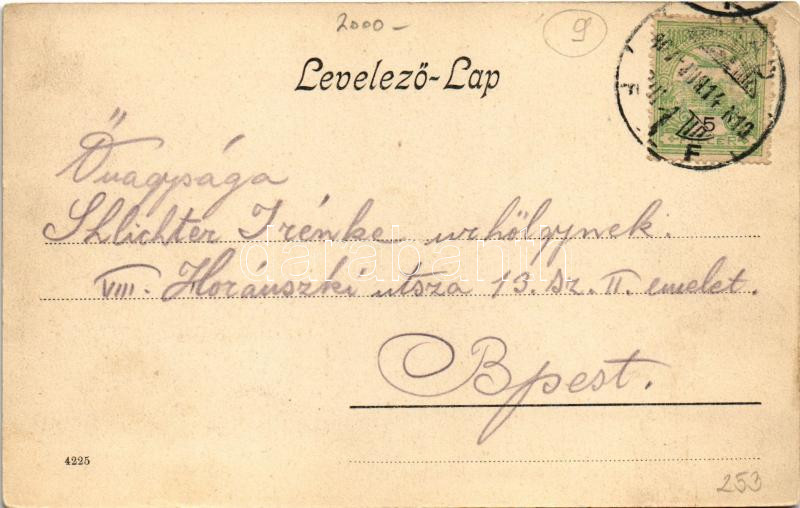 2000-
9
Levelező-Lap
Őnagysága
Shlichter Irénke urhölgynek.
VIII. Horánszki utsza 13. sz. II. emelet.
Bpest.
4225
253
darabanth
5
F
F